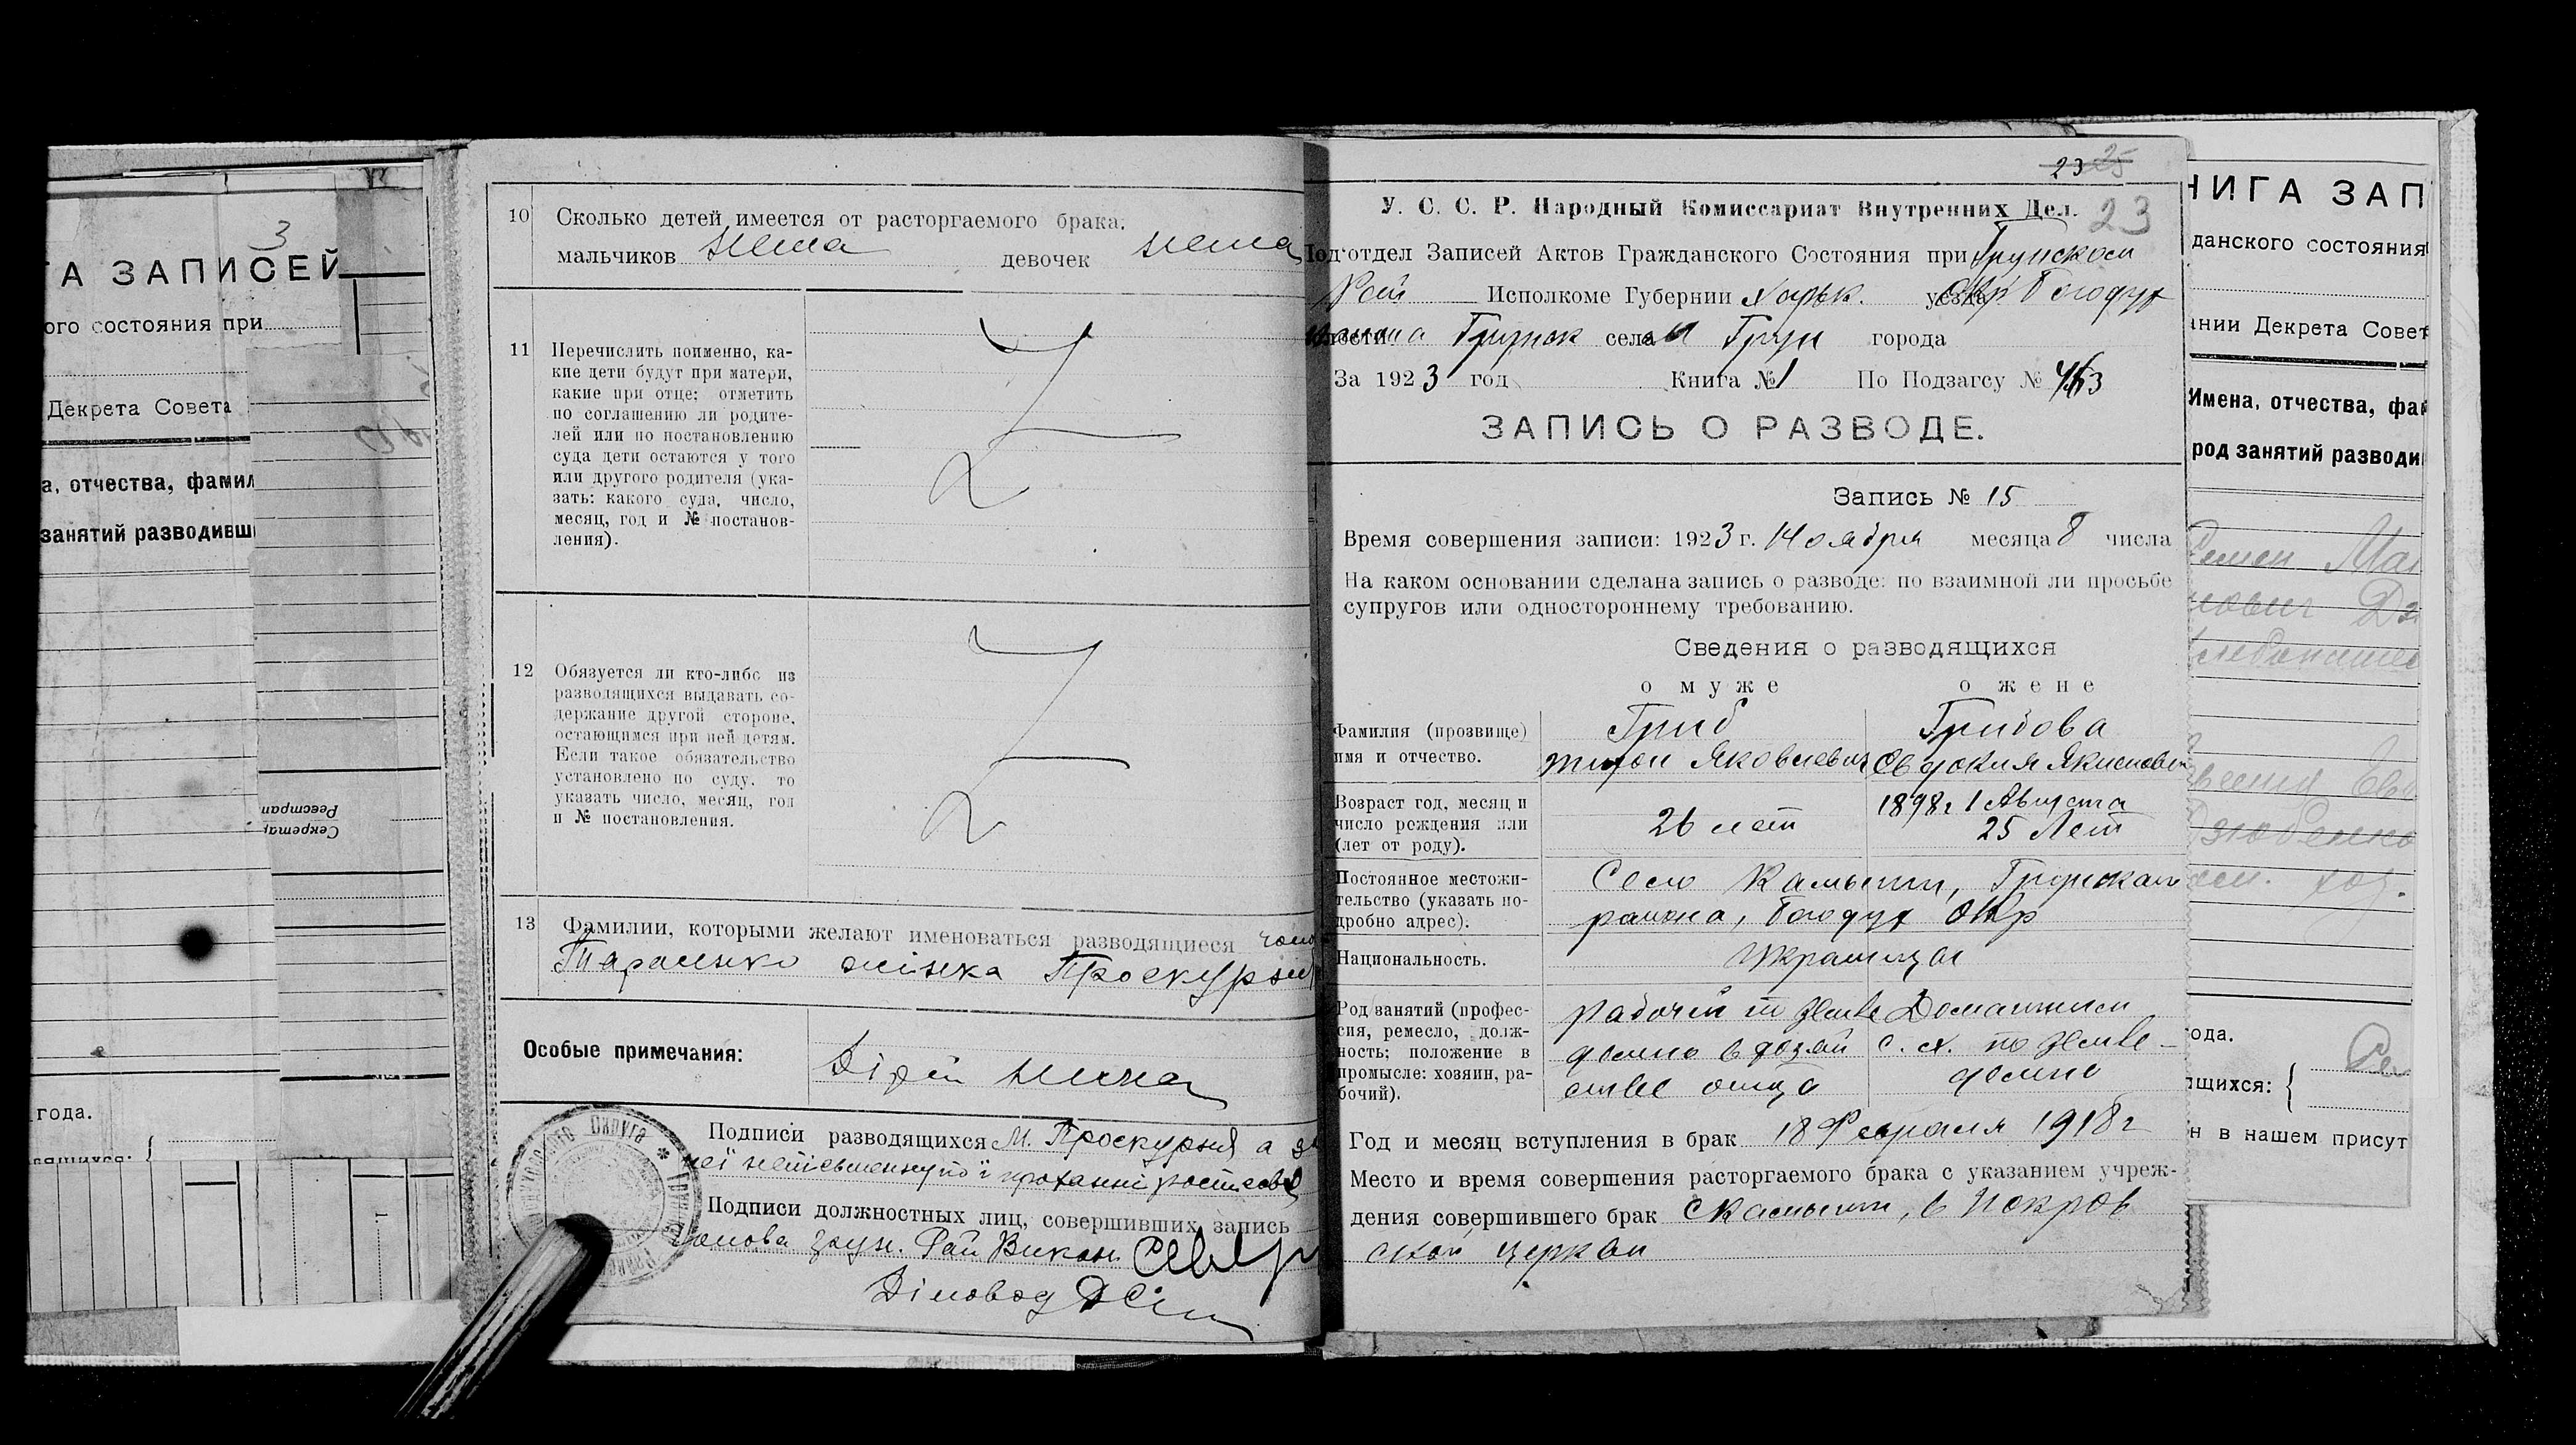 3
ГА ЗАПИСЕЙ
ого состояния при
Декрета Совета
а, отчества, фамил
занятий разводивши
Реестрап
Секретар
года.
10 Сколько детей имеется от расторгаемого брака:
мальчиков нема девочек нема
11 Перечислить поименно, ка-
кие дети будут при матери,
какие при отце: отметить
по соглашению ли родите-
лей или по постановлению
суда дети остаются у того
или другого родителя (ука-
зать: какого суда, число,
месяц, год и № постанов-
ления).
12 Обязуется ли кто-либо из
разводящихся выдавать со-
держание другой стороне,
остающимся при ней детям.
Если такое обязательство
установлено по суду, то
указать число, месяц, год
и № постановления.
13 Фамилии, которыми желают именоваться разводящиеся
жінка Проскурня
Особые примечания:
Дітей нема
Подписи разводящихся М. Проскурня а за
неї неписьменну по її проханні
Подписи должностных лиц, совершивших запись
Голова Рай Викон.
Діловод
23 25
У. С. С. Р. Народный Комиссариат Внутренних Дел.
23
Под'отдел Записей Актов Гражданского Состояния при Грунском
Рай Исполкоме Губернии Харьк. уезда Окр Богодух
волости района Грунск села Грун города
За 1923 год Книга № 1 По Подзагсу №
ЗАПИСЬ О РАЗВОДЕ.
Запись № 15
Время совершения записи: 1923 г. Ноября месяца 8 числа
На каком основании сделана запись о разводе: по взаимной ли просьбе
супругов или одностороннему требованию.
Сведения о разводящихся
о муже о жене
Фамилия (прозвище) имя и отчество.
Гриб Грибова
Яковлевич Евдокия Якимовн
Возраст год, месяц и число рождения или (лет от роду).
1898 г 1 Августа
26 лет 25 Лет
Постоянное местожи-
тельство (указать по-
дробно адрес).
Село Камыши, Грунскаго
района, Богодух Окр
Национальность.
Украинцы
Род занятий (профес-
сия, ремесло, долж-
ность; положение в
промысле: хозяин, ра-
бочий).
рабочий по земле Домашним
делию в хозяй с. х. по земле-
стве отца делию
Год и месяц вступления в брак 18 Февраля 1918 г
Место и время совершения расторгаемого брака с указанием учреж-
дения совершившего брак с Камыши, в Покров
ской церкви
НИГА ЗАП
данского состояния
нии Декрета Совет
Имена, отчества, фам
род занятий разводи
года.
ящихся:
н в нашем присут